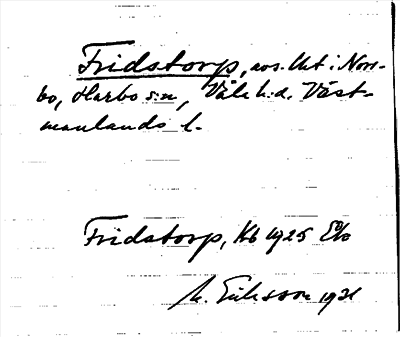 Fridstorp, avs. lht i Norr-
bo, Harbo sn, Våla hd. Väst-
manlands l.
Fridstorp, Kb 1925 Elb
M. Eriksson 1931